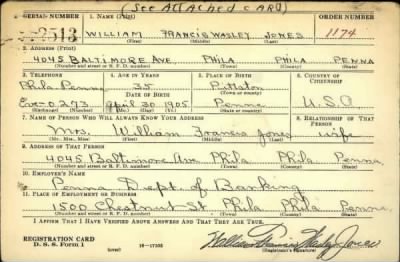 (See Attached Card)
SERIAL NUMBER 1. NAME (Print) ORDER NUMBER
2513 WILLIAM FRANCIS WASLEY JONES 1174
(First) (Middle) (Last)
2. ADDRESS (Print)
4045 BALTIMORE AVE. PHILA PHILA PENNA
(Number and street or R. F. D. number) (Town) (County) (State)
3. TELEPHONE 4. AGE IN YEARS 5. PLACE OF BIRTH 6. COUNTRY OF CITIZENSHIP
Phila Penna 35 Pittston
DATE OF BIRTH (Town or county)
Eve-0273 April 30 1905 Penna U.S.A
(Exchange) (Number) (Mo.) (Day) (Yr.) (State or country)
7. NAME OF PERSON WHO WILL ALWAYS KNOW YOUR ADDRESS 8. RELATIONSHIP OF THAT PERSON
Mrs. William Francis Jones wife
(Mr., Mrs., Miss) (First) (Middle) (Last)
9. ADDRESS OF THAT PERSON
4045 Baltimore Ave Phila Phila Penna
(Number and street or R. F. D. number) (Town) (County) (State)
10. EMPLOYER'S NAME
Penna Dept. of Banking
11. PLACE OF EMPLOYMENT OR BUSINESS
1500 Chestnut St. Phila Phila Penna
(Number and street or R. F. D. number) (Town) (County) (State)
I AFFIRM THAT I HAVE VERIFIED ABOVE ANSWERS AND THAT THEY ARE TRUE.
REGISTRATION CARD
D. S. S. Form 1 (over) 16-17105 William Francis Wasley Jones
(Registrant's signature)